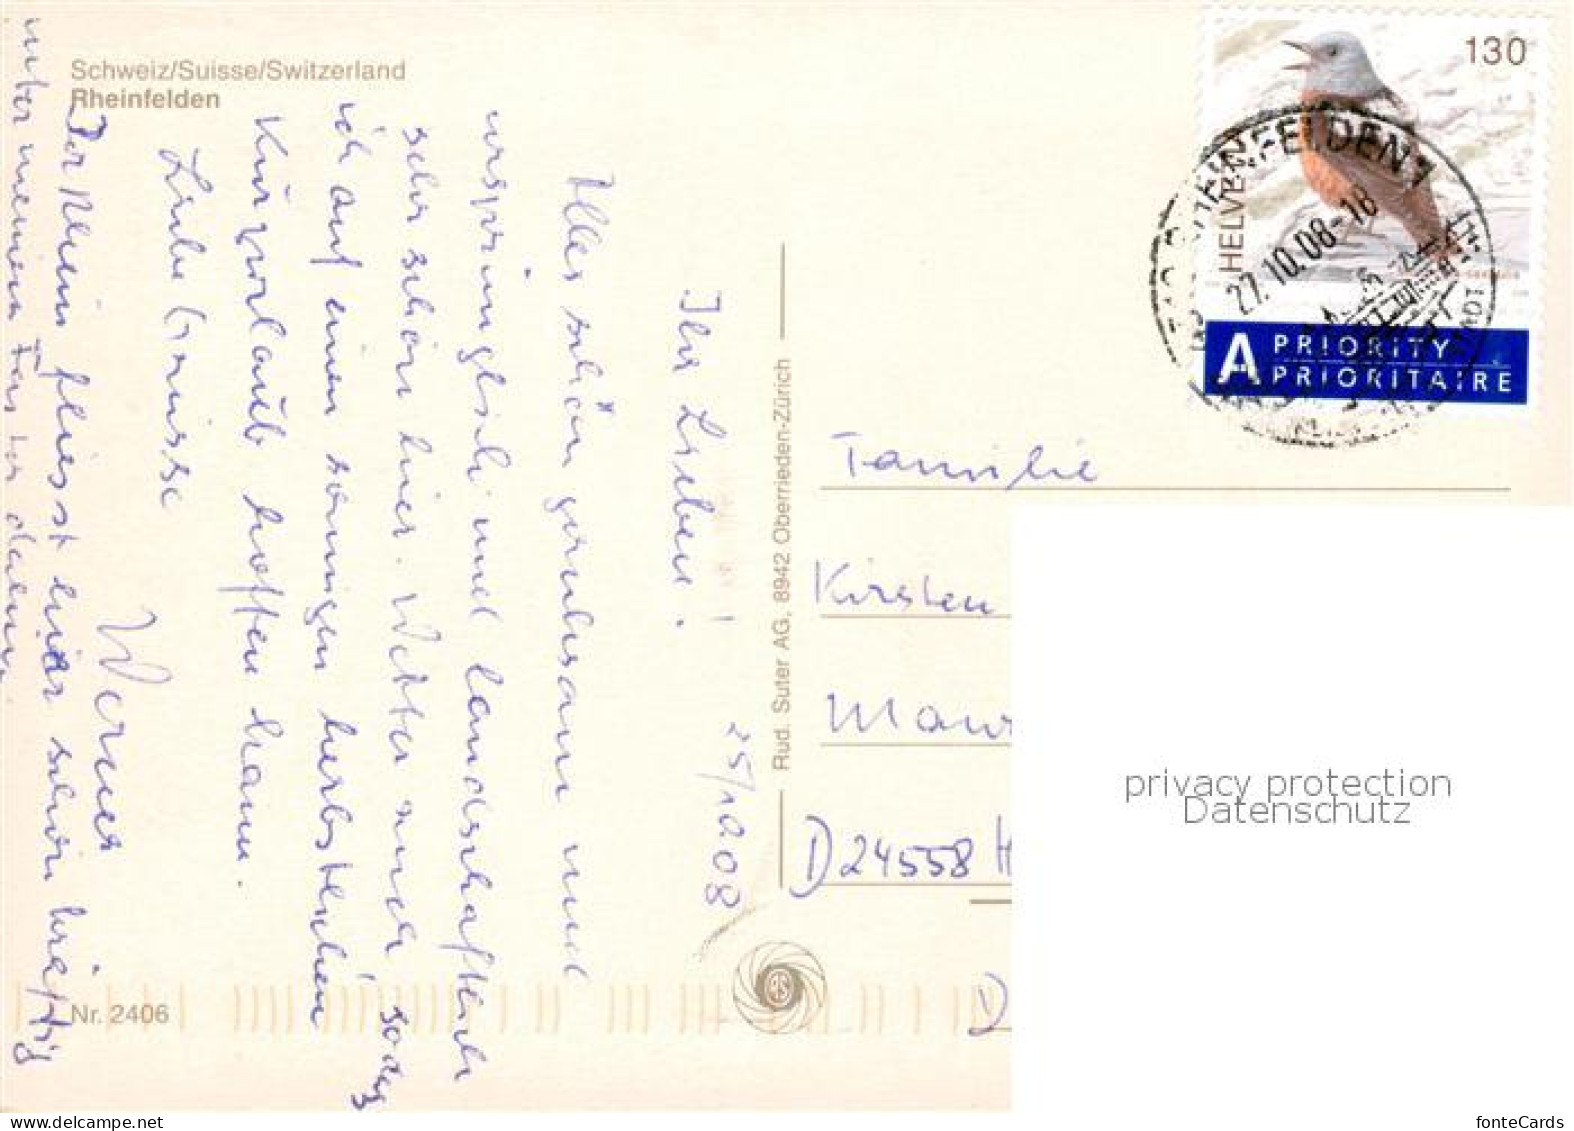 Schweiz/Suisse/Switzerland
Rheinfelden
25/10.08
Ihr Lieben!
Alles schön geruhsam und
ursprünglich und landschaftlich
sehr schön hier. Wetter auch sodaß
ich auf einen sonnigen herbstlichen
Kurzurlaub hoffen kann.
Liebe Grüsse
Werner
Der Rhein fliesst hier schon kräftig
unter meinem Fenster
Nr. 2406
Rud. Suter AG, 8942 Oberrieden-Zürich
RS
130
HELVE
RHEINFELDEN 1
27.10.08-18
A PRIORITY
PRIORITAIRE
Familie
Kirsten
D 24558 H
D
privacy protection
Datenschutz
fonteCards